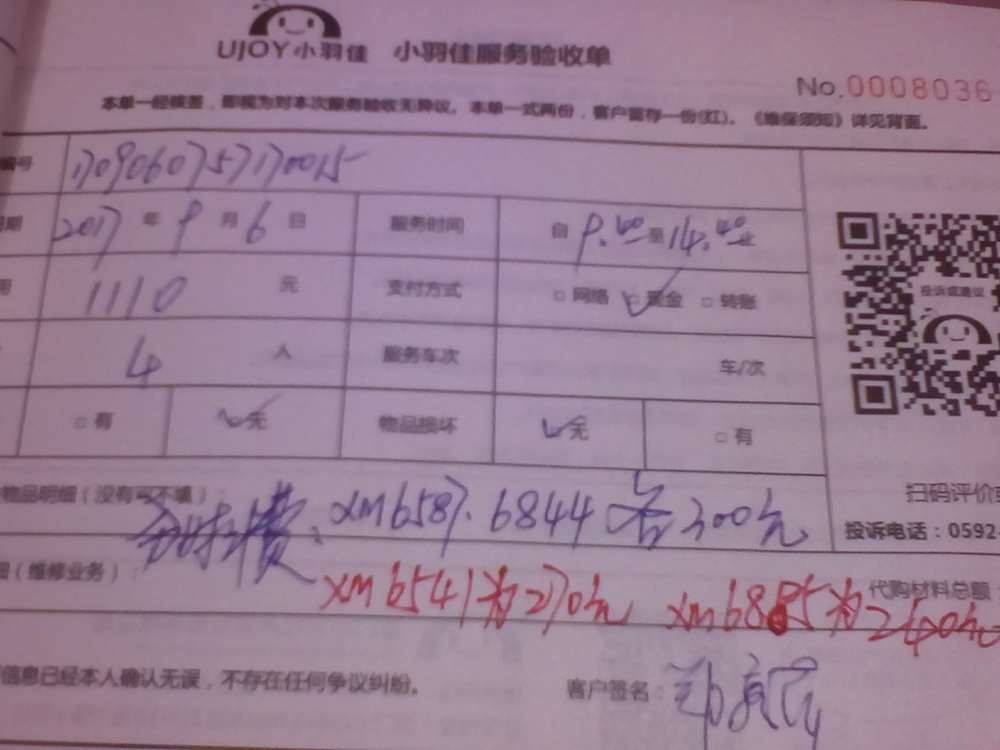 UJOY小羽佳 小羽佳服务验收单
No.0008036
本单一经核签，即视为对本次服务验收无异议。本单一式两份，客户留存一份(红)。《维保须知》详见背面。
编号 1709060757170015
日期 2017年9月6日 服务时间 自9.00至14.00止
用 1110元 支付方式 □网络 ☑现金 □转账
4人 服务车次 车/次
□有 ☑无 物品损坏 ☑无 □有
投诉或建议
物品明细（没有可不填）：
xm6587.6844各300元
扫码评价
投诉电话：0592-
（维修业务）：
xm6541为270元 xm6885为240元
代购材料总额
信息已经本人确认无误，不存在任何争议纠纷。 客户签名：